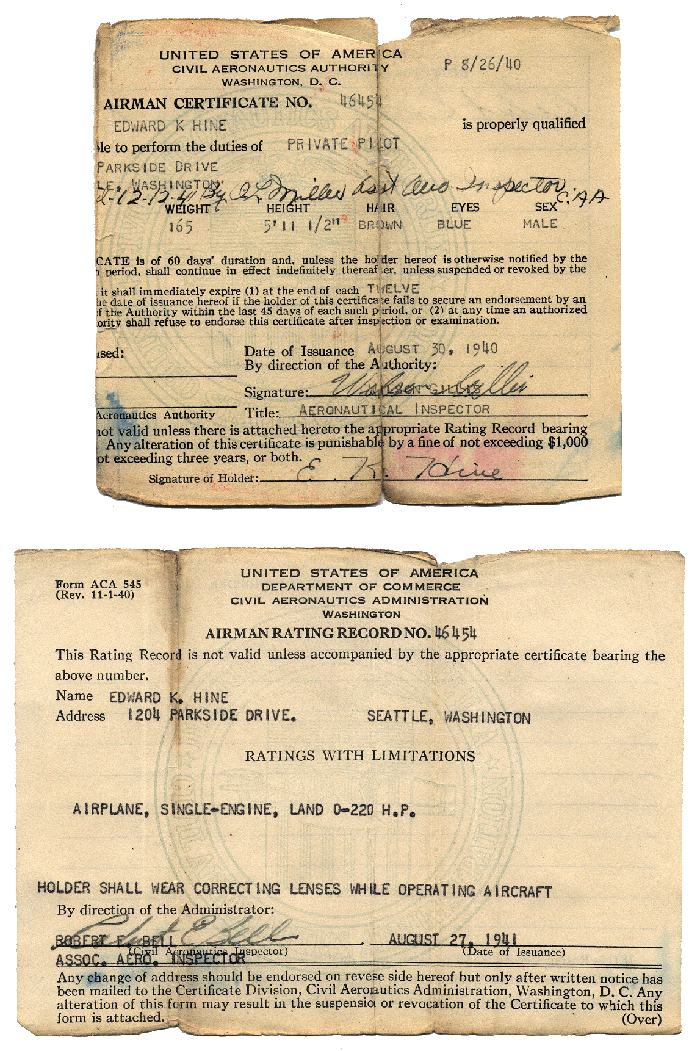 UNITED STATES OF AMERICA
CIVIL AERONAUTICS AUTHORITY
WASHINGTON, D. C.
P 8/26/40
AIRMAN CERTIFICATE NO. 46454
EDWARD K HINE is properly qualified
le to perform the duties of PRIVATE PILOT
PARKSIDE DRIVE
LE, WASHINGTON
12-12-41 By Miller Asst Aero Inspector C.A.A
WEIGHT HEIGHT HAIR EYES SEX
165 5' 11 1/2" BROWN BLUE MALE
CATE is of 60 days' duration and, unless the holder hereof is otherwise notified by the
period, shall continue in effect indefinitely thereafter, unless suspended or revoked by the
it shall immediately expire (1) at the end of each TWELVE
he date of issuance hereof if the holder of this certificate fails to secure an endorsement by an
f the Authority within the last 45 days of each such period, or (2) at any time an authorized
ority shall refuse to endorse this certificate after inspection or examination.
sed: Date of Issuance AUGUST 30, 1940
By direction of the Authority:
Signature: GILLIS
Aeronautics Authority Title: AERONAUTICAL INSPECTOR
not valid unless there is attached hereto the appropriate Rating Record bearing
Any alteration of this certificate is punishable by a fine of not exceeding $1,000
ot exceeding three years, or both.
Signature of Holder: E. K. Hine
UNITED STATES OF AMERICA
DEPARTMENT OF COMMERCE
CIVIL AERONAUTICS ADMINISTRATION
WASHINGTON
Form ACA 545
(Rev. 11-1-40)
AIRMAN RATING RECORD NO. 46454
This Rating Record is not valid unless accompanied by the appropriate certificate bearing the
above number.
Name EDWARD K. HINE
Address 1204 PARKSIDE DRIVE. SEATTLE, WASHINGTON
RATINGS WITH LIMITATIONS
AIRPLANE, SINGLE-ENGINE, LAND 0-220 H.P.
HOLDER SHALL WEAR CORRECTING LENSES WHILE OPERATING AIRCRAFT
By direction of the Administrator:
Robert E Bell
ROBERT E. BELL, AUGUST 27, 1941
(Civil Aeronautics Inspector) (Date of Issuance)
ASSOC. AERO. INSPECTOR
Any change of address should be endorsed on revese side hereof but only after written notice has
been mailed to the Certificate Division, Civil Aeronautics Administration, Washington, D. C. Any
alteration of this form may result in the suspensio or revocation of the Certificate to which this
form is attached. (Over)